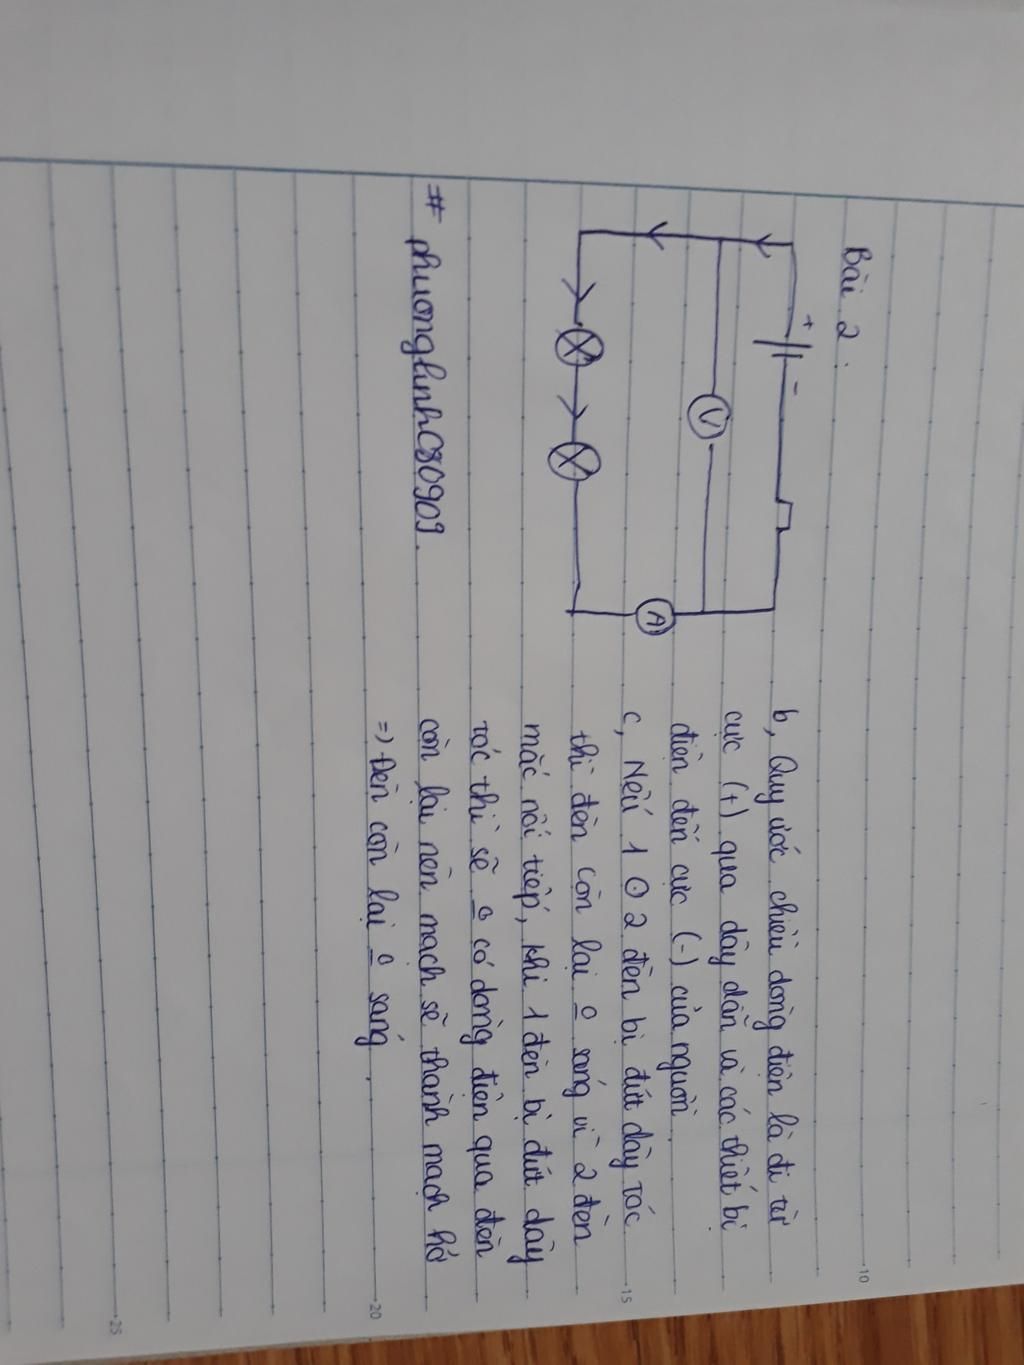 Bài 2.
+ -
V
A
b, Quy ước chiều dòng điện là đi từ
cực (+) qua dây dẫn và các thiết bị
điện đến cực (-) của nguồn.
c, Nếu 1 2 đèn bị đứt dây tóc
thì đèn còn lại sáng vì 2 đèn
mắc nối tiếp, khi 1 đèn bị đứt dây
tóc thì sẽ có dòng điện qua đèn
còn lại nên mạch sẽ thành mạch hở
=> Đèn còn lại sáng.
# phuonglinh080909.
10
15
20
25